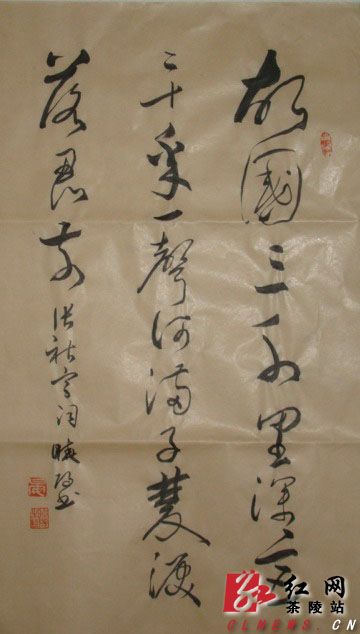 故國三千里深宮
二十年一聲何滿子雙淚
落君前 張祜宮詞
红网
茶陵站
CLNEWS.CN